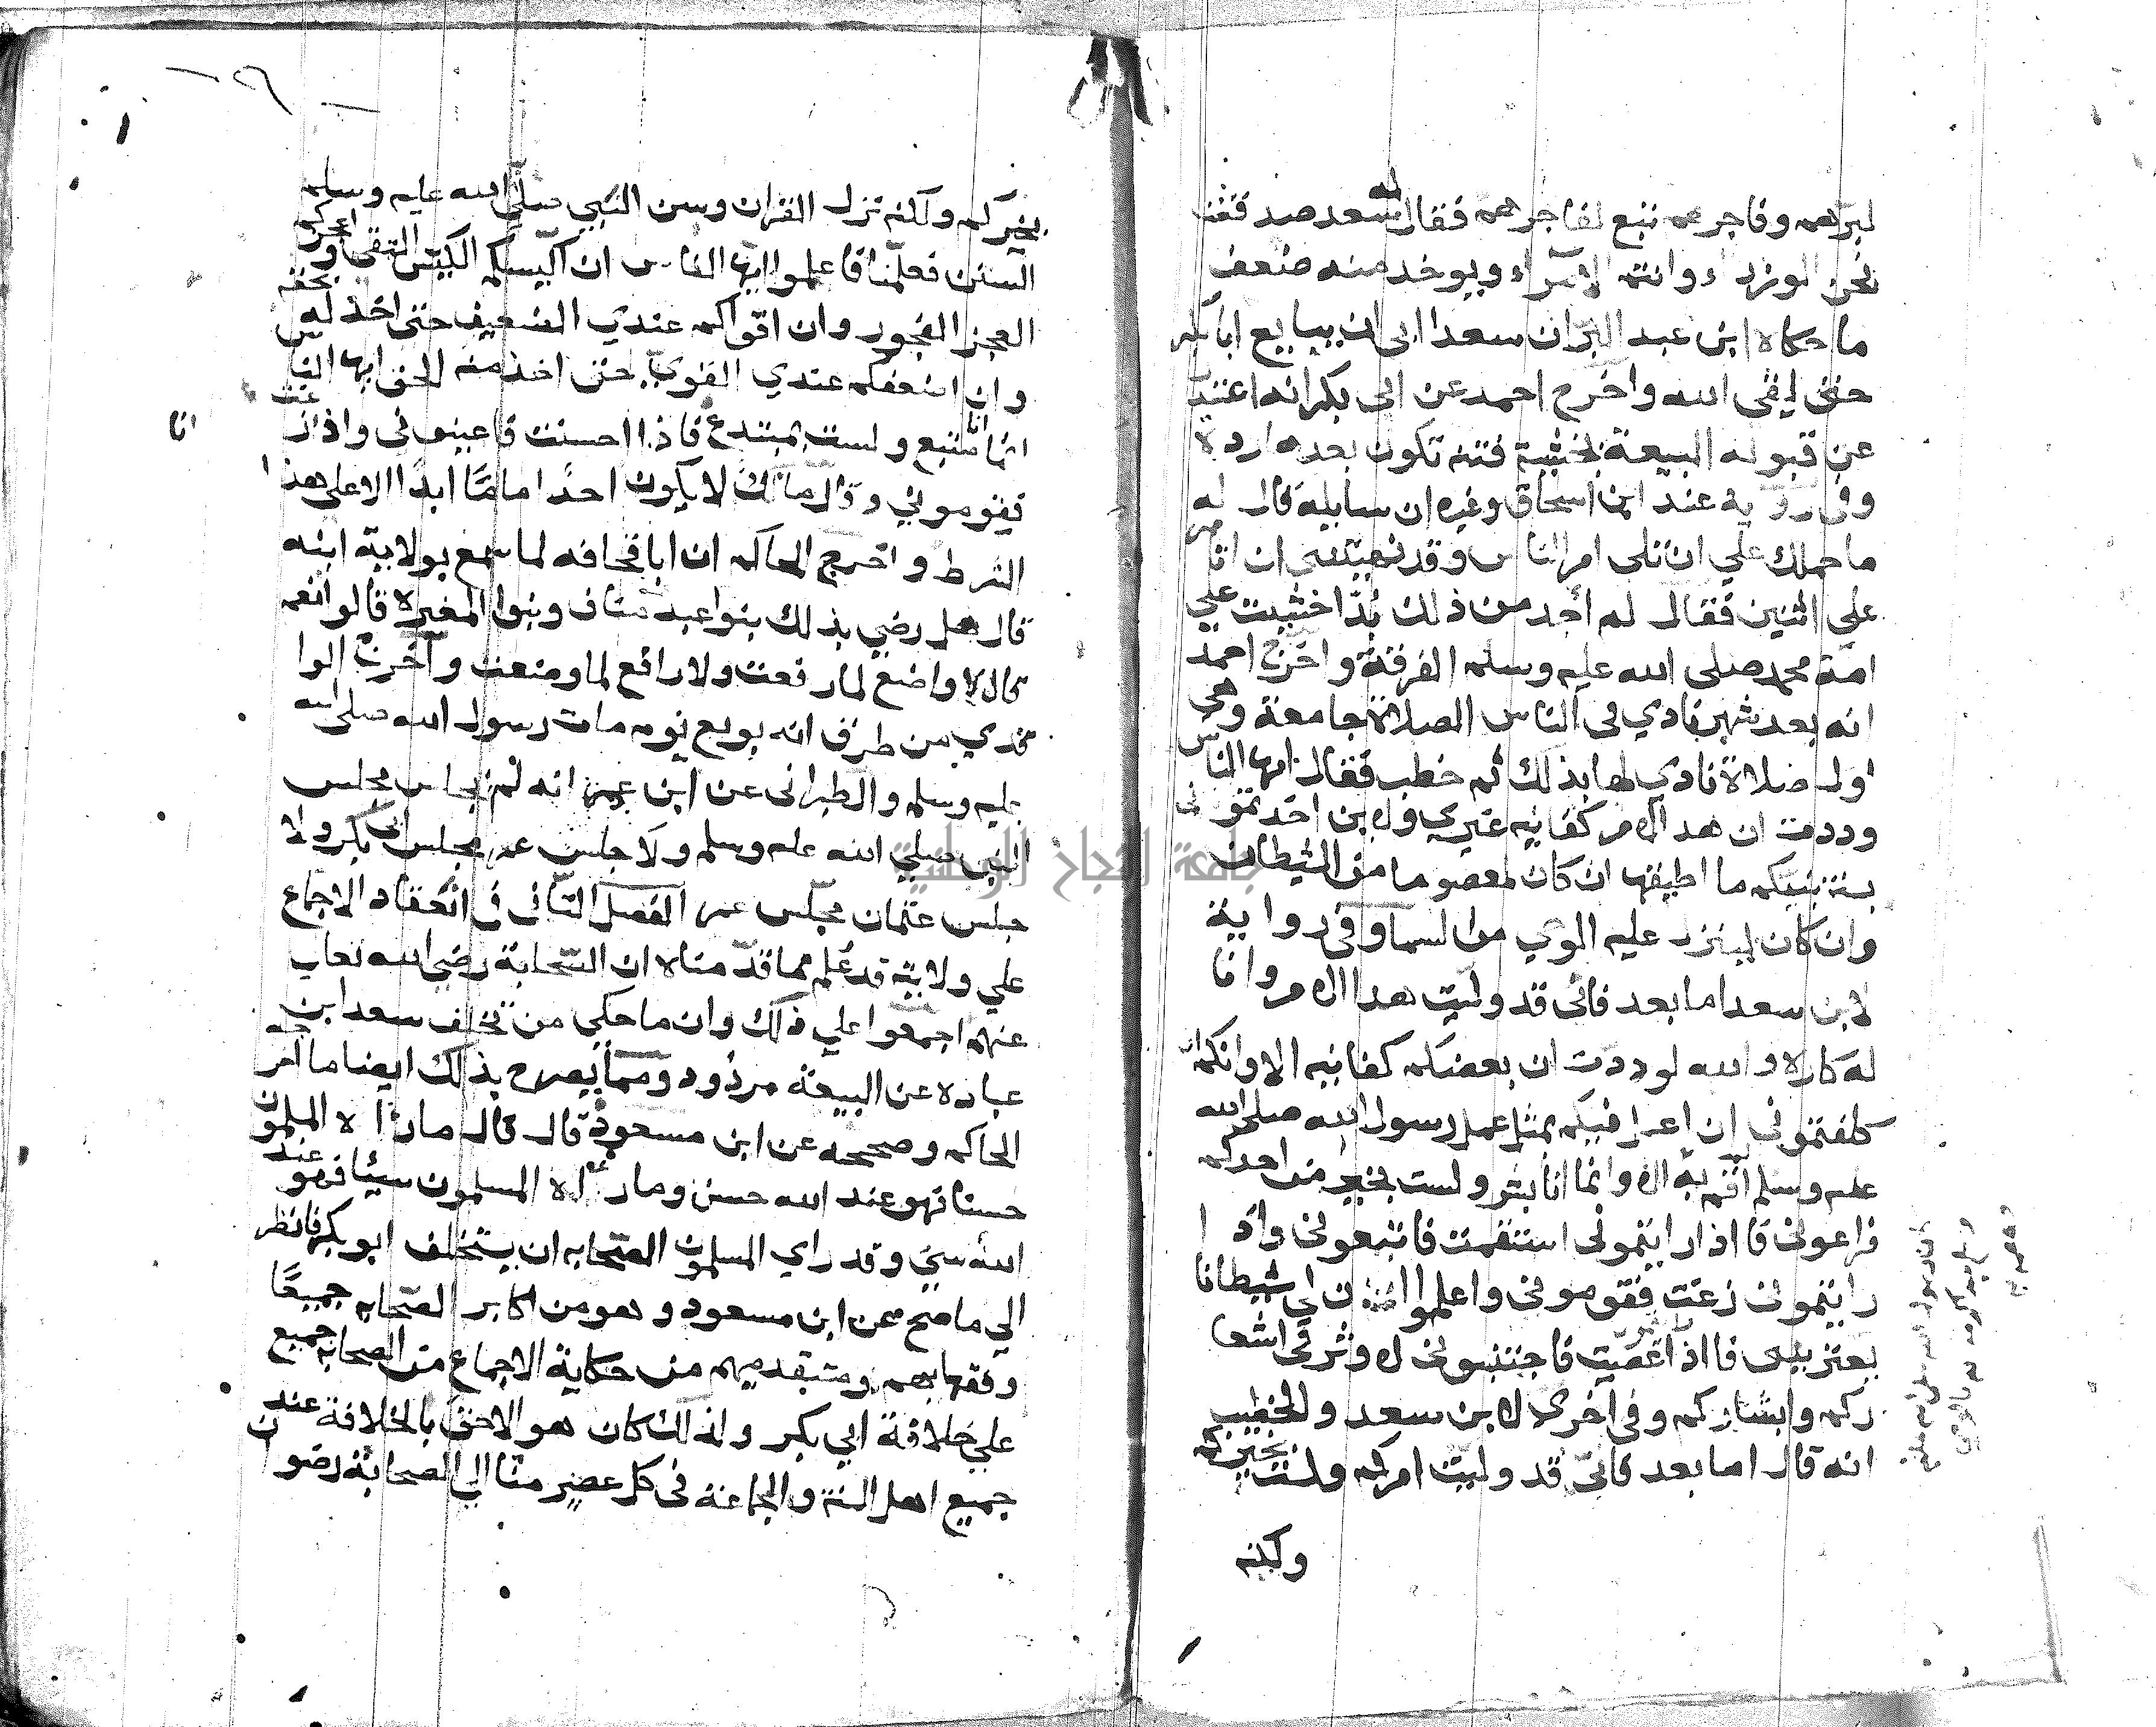 لبرهم وفاجرهم تبع لفاجرهم فقال له سعد صدقت
نحن الوزراء وانتم الامراء ويوخد منه ضعف
ما حكاه ابن عبد البر ان سعدا ابى ان يبايع ابا بكر
حتى لقى الله واخرج احمد عن ابى بكر انه اعتذر
عن قبوله البيعة خشية فتنه تكون بعدها ردة
وفى رواية عند ابن اسحاق وغيره ان سايله قال له
ما حملك علي ان تلى امر الناس وقد نهيتنى ان اتامر
على اثنين فقال لم اجد من ذلك بدا خشيت علي
امة محمد صلى الله عليه وسلم الفرقة واخرج احمد
انه بعد شهر نادي فى الناس الصلاة جامعة وهى
اول صلاة نادي لها بذلك ثم خطب فقال ايها الناس
وددت ان هدا الامر كفانيه غيرى ولين اخدتمونى
بسنة نبيكم ما اطيقها ان كان لمعصوما من الشيطان
وان كان لينزل عليه الوحى من السما وفى رواية
لابن سعد اما بعد فانى قد وليت هدا الامر وانا
له كاره والله لوددت ان بعضكم كفانيه الا وانكم ان
كلفتمونى ان اعمل فيكم بمثل عمل رسول الله صلى الله
عليه وسلم اقم به الا وانما انا بشر ولست بخير من احدكم
فراعونى فا اذا رايتمونى استقمت فاتبعونى واذا
رايتمونى زغت فقومونى واعلموا ان لي شيطانا
يعتريني فا اذا غضبت فاجتنبونى لا وثر فى اشعا
ركم وابشاركم وفى اخرى لابن سعد والخطيب
انه قال اما بعد فانى قد وليت امركم ولست بخيركم
ولكنه
بخيركم ولكنه نزل القران وسن النبي صلي الله عليه وسلم
السنن فعلمنا فاعلموا ايها الناس ان اكيسكم الكيس التقى واعجزكم
العجز الفجور وان اقواكم عندي الضعيف حتى اخذ له بحقه
وان اضعفكم عندي القوي حتى اخذ منه الحق ايها الناس
انما انا متبع ولست بمبتدع فاذا احسنت فاعينونى واذا زغت
انا
فقومونى وقال مالك لا يكون احدا اماما ابدا الا على هذا
الشرط واخرج الحاكم ان ابا قحافه لما سمع بولاية ابنه
قال هل رضي بذلك بنوا عبد مناف وبنوا المغيره قالوا نعم
قال لا واضع لما رفعت ولا رافع لما وضعت واخرج الوا
قدي من طرق انه بويع يوم مات رسول الله صلى الله
عليه وسلم والطبرانى عن ابن عمر انه لم يجلس مجلس
النبى صلي الله عليه وسلم ولا جلس عمر مجلس ابى بكر ولا
جلس عثمان مجلس عمر الفصل الثانى فى انعقاد الاجماع
علي ولايته قد علم مما قدمناه ان الصحابة رضي الله تعالي
عنهم اجمعوا علي ذلك وان ما حكي من تخلف سعد ابن
عباده عن البيعة مردود ومما يصرح بذلك ايضا ما اخرجه
الحاكم وصححه عن ابن مسعود قال قال ما راه المسلمون
حسنا فهو عند الله حسن وما راه المسلمون سيئا فهو عند
الله سيئ وقد راي المسلمون الصحابه ان يستخلف ابو بكر فانظر
الي ما صح عن ابن مسعود وهو من اكابر الصحابه جميعا
وفقهايهم ومتقدميهم من حكاية الاجماع من الصحابه جميع
علي خلافة ابي بكر ولذلك كان هو الاحق بالخلافة عند
جميع اهل السنة والجماعة فى كل عصر منا الى الصحابة رضوان
جامعة النجاح الوطنية